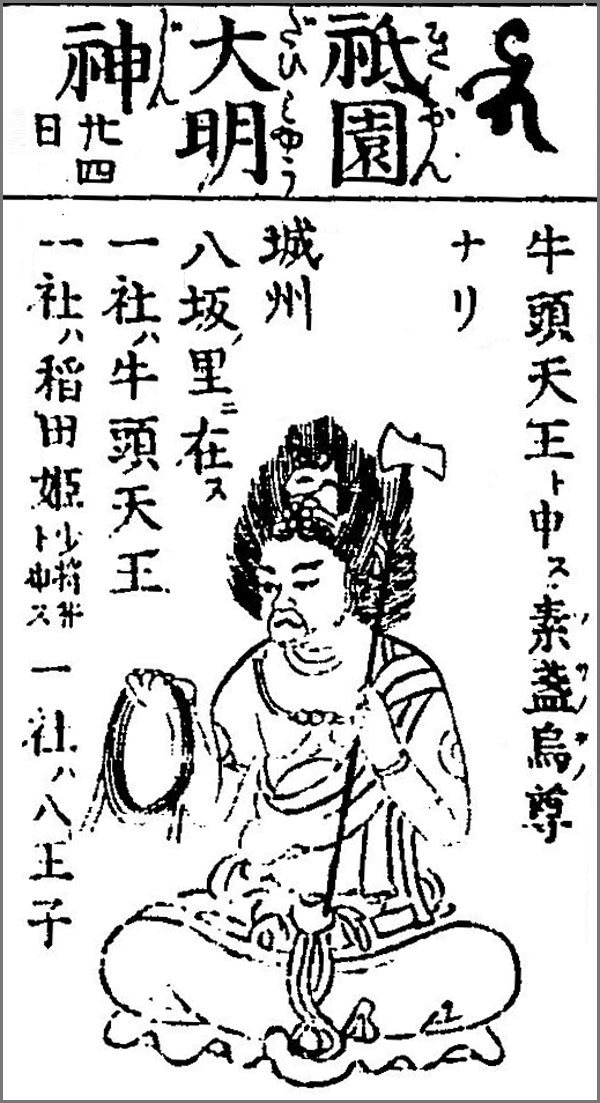 祇園
ぎおん
大明
だいみやう
神
じん
廿四
日
牛頭天王ト申ス素盞烏尊
ソサノヲノ
ナリ
城州
八坂ノ里ニ在ス
一社ハ牛頭天王
一社ハ稲田姫少将井ト申ス 一社ハ八王子